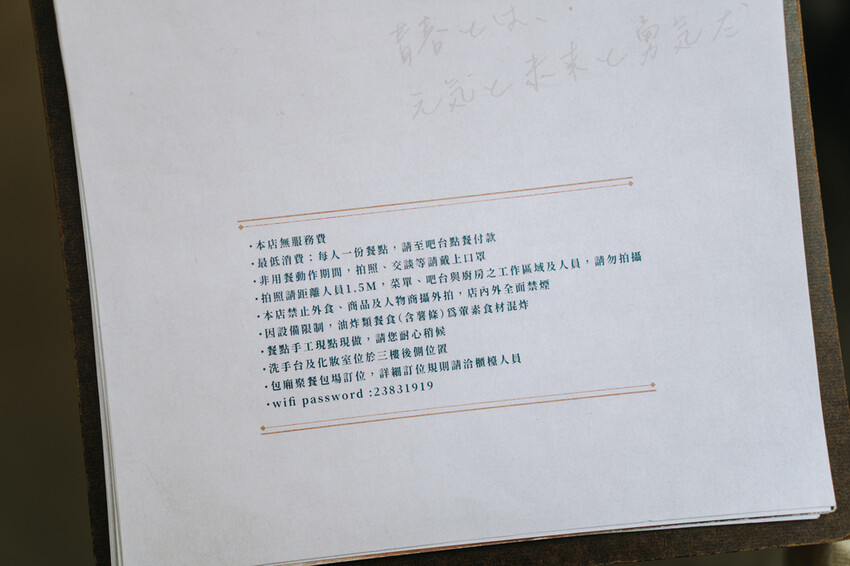 青春とは、
元気と未来と勇気だ
・本店無服務費
・最低消費：每人一份餐點，請至吧台點餐付款
・非用餐動作期間，拍照、交談等請戴上口罩
・拍照請距離人員1.5M，菜單、吧台與廚房之工作區域及人員，請勿拍攝
・本店禁止外食、商品及人物商攝外拍，店內外全面禁煙
・因設備限制，油炸類餐食(含薯條)為葷素食材混炸
・餐點手工現點現做，請您耐心稍候
・洗手台及化妝室位於三樓後側位置
・包廂聚餐包場訂位，詳細訂位規則請洽櫃檯人員
・wifi password :23831919